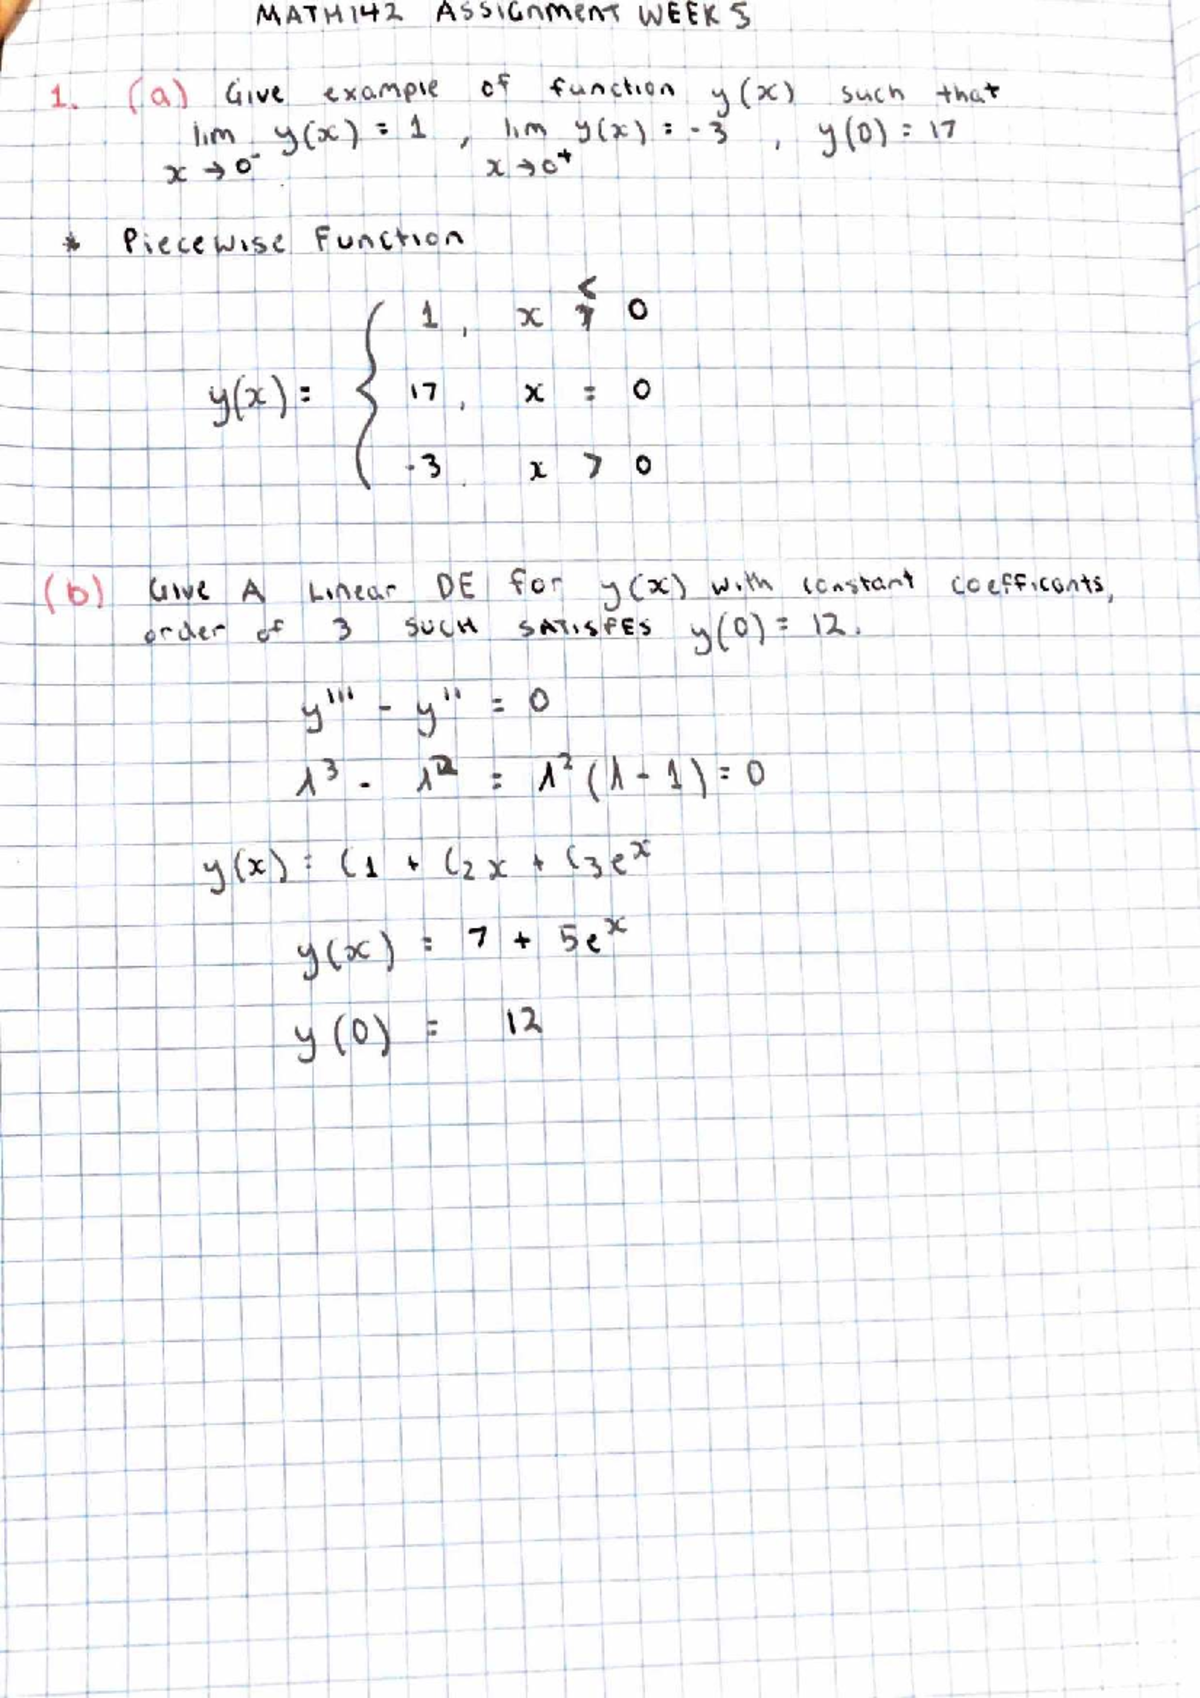 MATH142 ASSIGNMENT WEEK 5
1. (a) Give example of function y(x) such that
lim y(x) = 1 , lim y(x) = -3 , y(0) = 17
x → 0⁻ x → 0⁺
* Piecewise Function
1 , x < 0
y(x) = { 17 , x = 0
-3 , x > 0
(b) Give A Linear DE for y(x) with constant coefficants,
order of 3 SUCH SATISFES y(0) = 12.
y''' - y'' = 0
λ³ - λ² = λ² (λ - 1) = 0
y(x) = C1 + C2x + C3eˣ
y(x) = 7 + 5eˣ
y(0) = 12